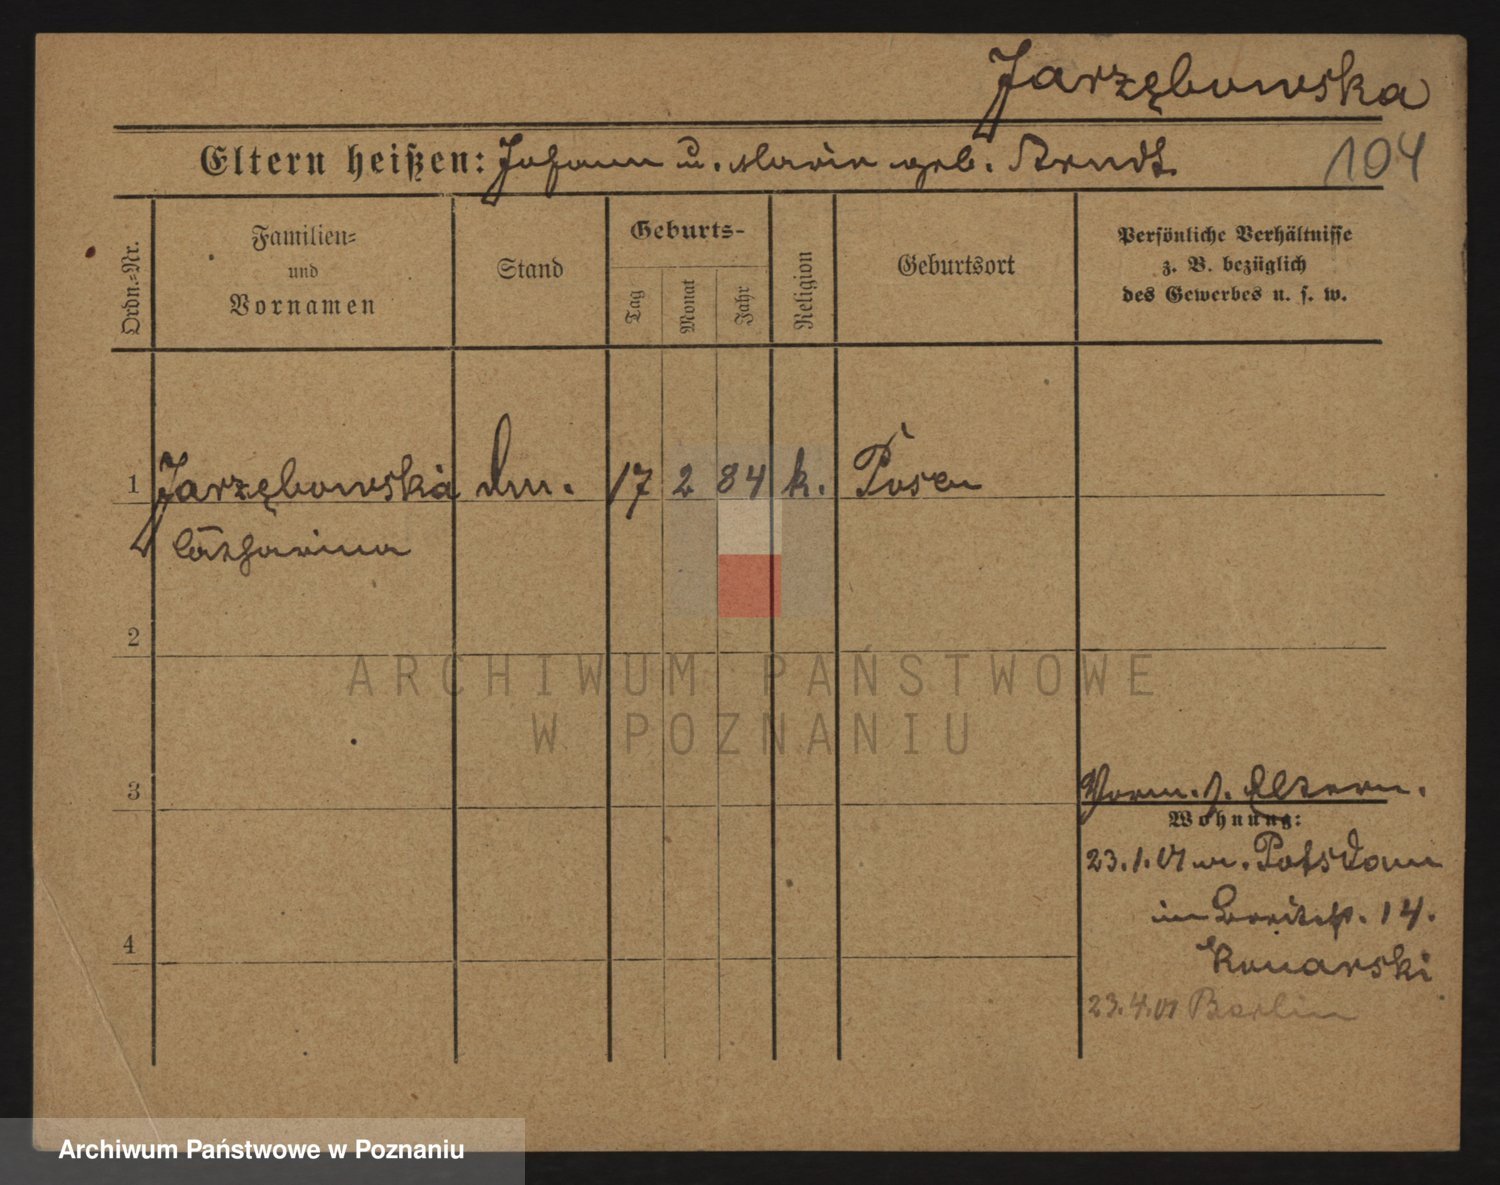 Jarzębowska
Eltern heißen: Johann u. Marie geb. Arndt.
104
Ordn.-Nr.
Familien-
und
Vornamen
Stand
Geburts-
Tag
Monat
Jahr
Religion
Geburtsort
Persönliche Verhältnisse
z. B. bezüglich
des Gewerbes u. s. w.
1 Jarzębowska 17 2 84 k. Posen
Catharina
2
ARCHIWUM PAŃSTWOWE
W POZNANIU
3
Vorm. s. Eltern.
Wohnung:
23.1.01 n. Potsdam
in Breitestr. 14.
Konarski
4
23.4.01 Berlin
Archiwum Państwowe w Poznaniu